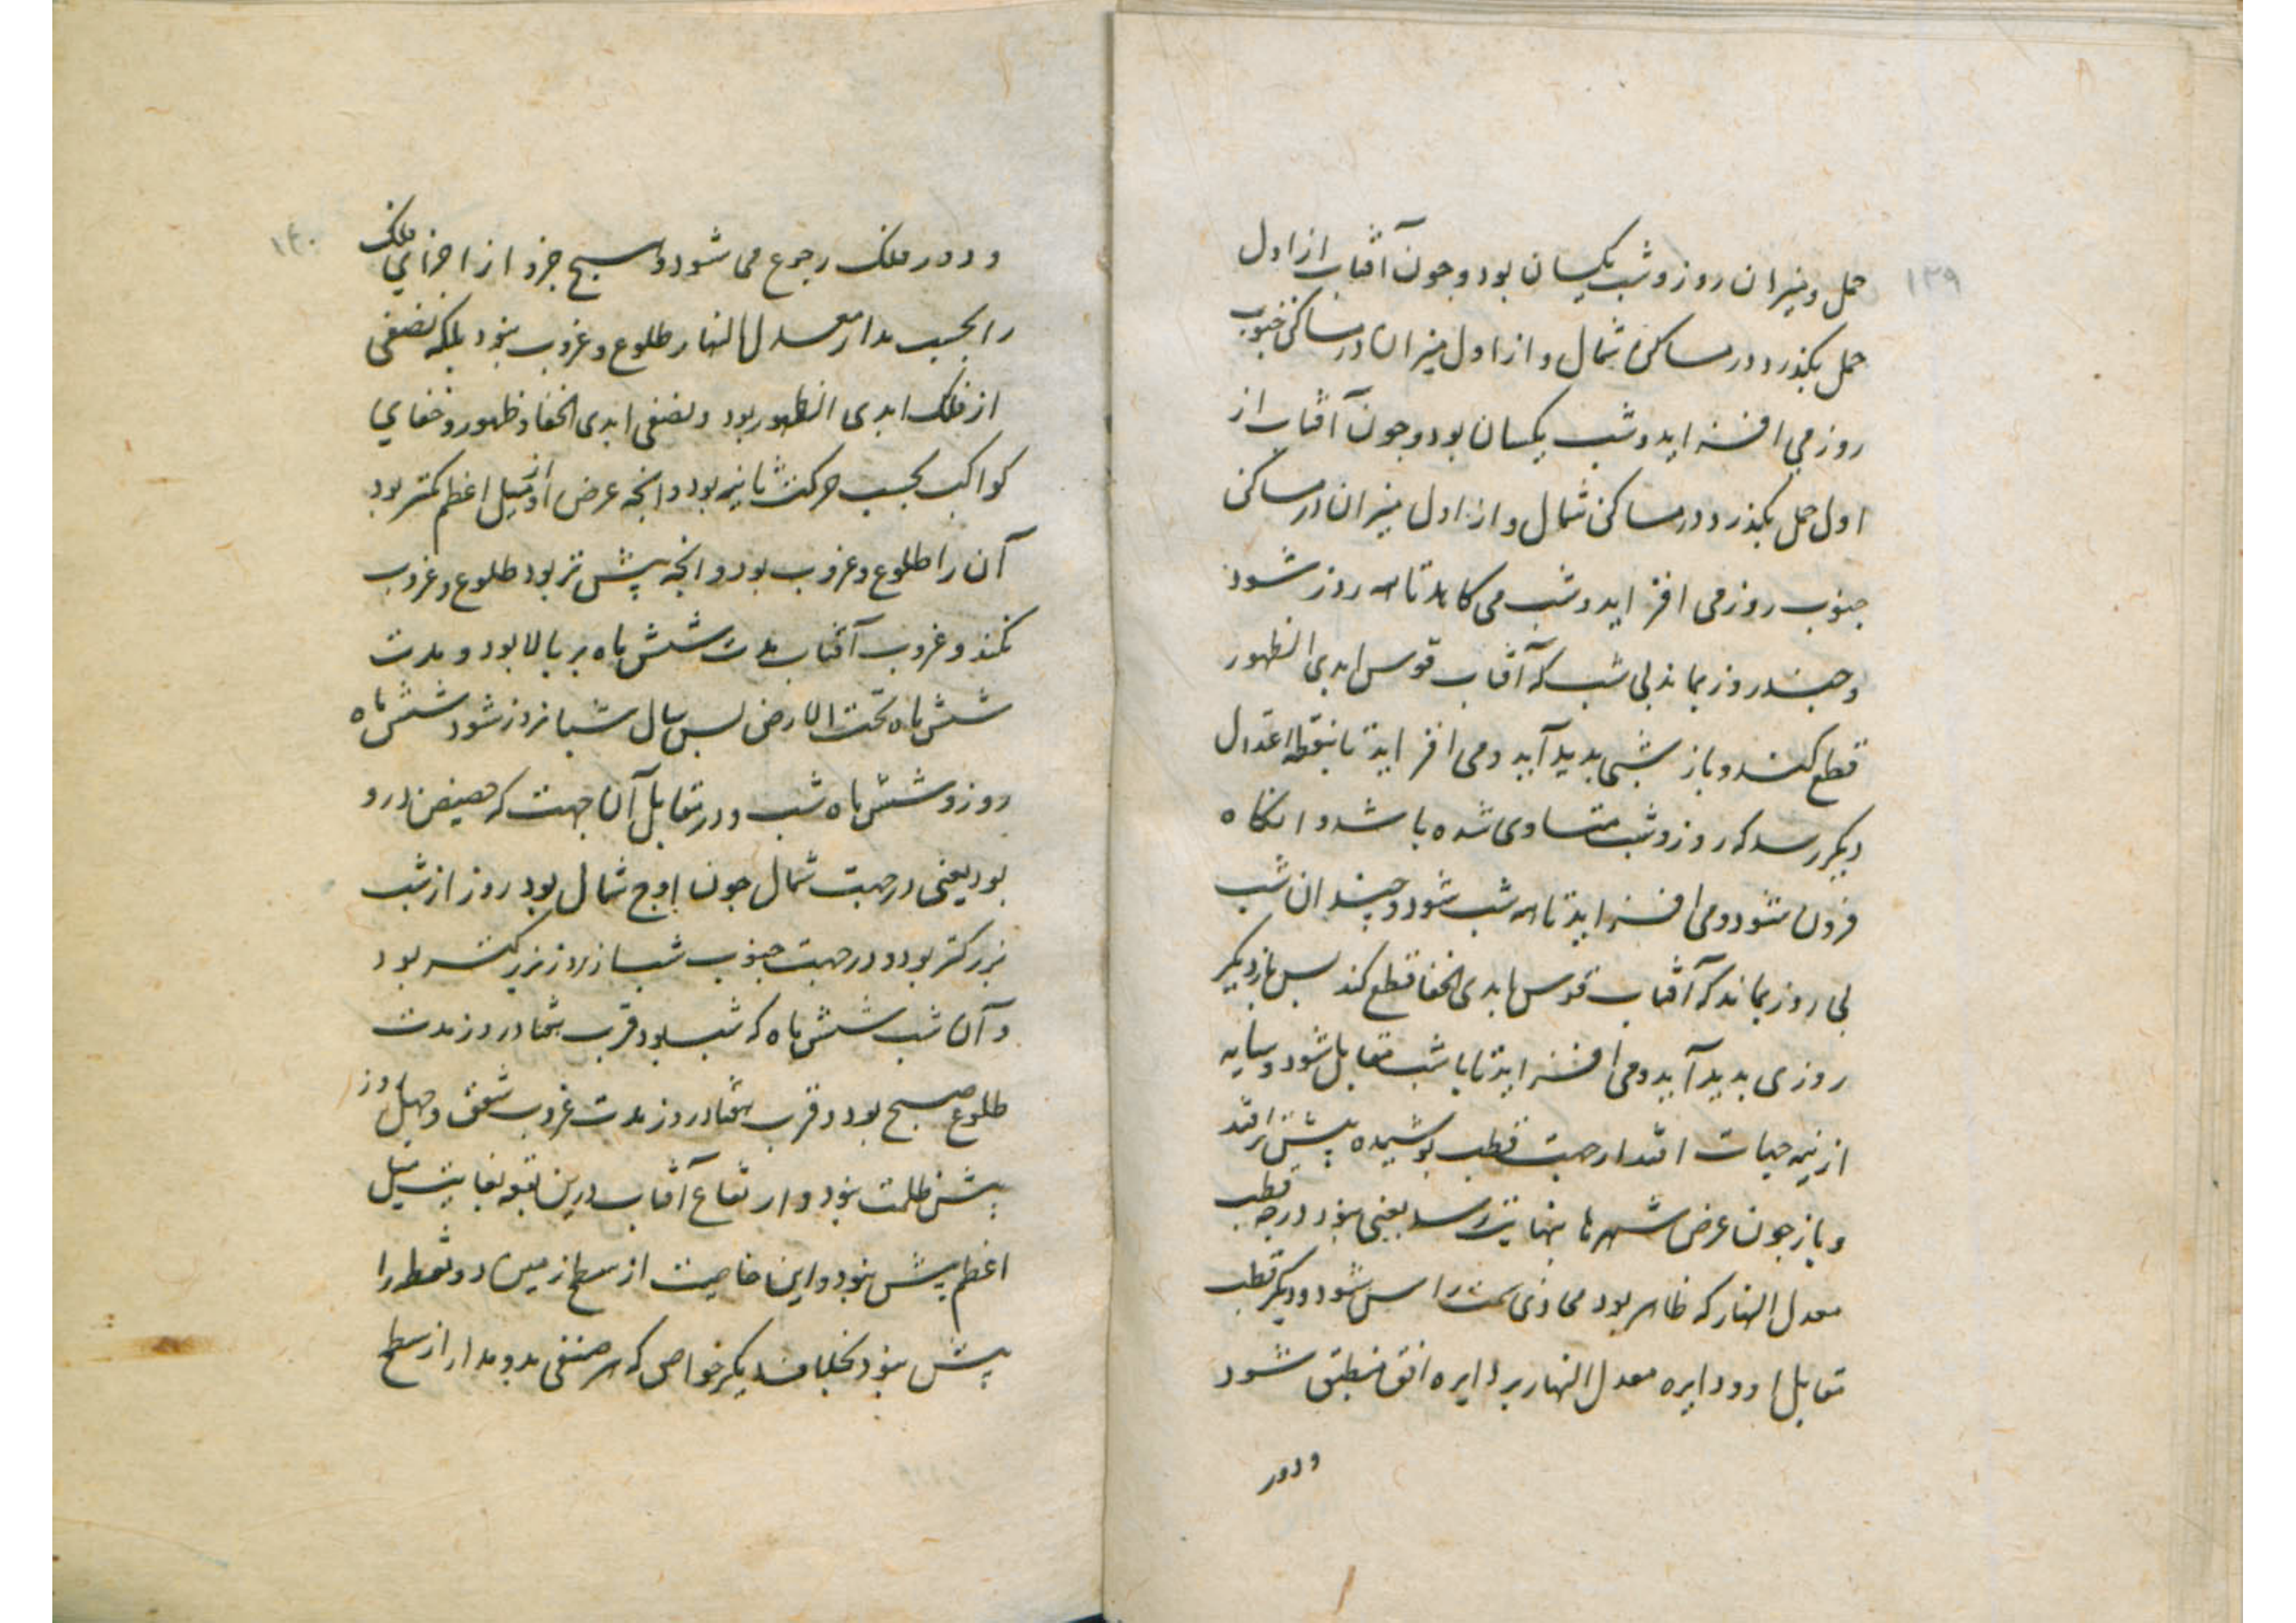 ۱۳۹
حمل و میزان روز و شب یکسان بود و چون آفتاب از اول
حمل بگذرد در مساکن شمال و از اول میزان در مساکن جنوب
روز می افزاید و شب یکسان بود و چون آفتاب از
اول حمل بگذرد در مساکن شمال و از اول میزان در مساکن
جنوب روز می افزاید و شب می کاهد تا همه روز شود
و چند روز بماند بی شب که آفتاب قوس ابدی الظهور
قطع کند و باز شبی پدید آید و می افزاید تا بنقطه اعتدال
دیگر رسد که روز و شب متساوی شده باشد و انکاه
فزون شود و می افزاید تا همه شب شود و چندان شب
بی روز بماند که آفتاب قوس ابدی الخفا قطع کند پس باز دیگر
روزی پدید آید و می افزاید تا با شب مقابل شود و سایه
از نیمه جهات افتد از جهت قطب پوشیده بیشتر افتد
و باز چون عرض شهرها بنهایت رسد یعنی بنود درجه قطب
معدل النهار که ظاهر بود محاذی سمت راس شود و دیگر قطب
مقابل او و دایره معدل النهار بر دایره افق منطبق شود
و دور
۱۴۰
و دور فلک رحوی می شود و هیچ جزو از اجزای فلک
را بحسب مدار معدل النهار طلوع و غروب نبود بلکه نصفی
از فلک ابدی الظهور بود و نصفی ابدی الخفا و ظهور و خفای
کواکب بحسب حرکت ثانیه بود و انچه عرض او از میل اعظم کمتر بود
آن را طلوع و غروب بود و انچه بیش تر بود طلوع و غروب
نکند و غروب آفتاب مدت شش ماه بر بالا بود و مدت
شش ماه تحت الارض پس سال شبانروز شود شش ماه
روز و شش ماه شب و در مقابل آن جهت که حضیض درو
بود یعنی در جهت شمال چون اوج شمال بود روز از شب
بزرکتر بود و در جهت جنوب شب از روز بزرکتر بود
و آن شب شش ماه که شب بود قرب هفتاد روز مدت
طلوع صبح بود و قرب هفتاد روز مدت غروب شفق و چهل روز
بیش ظلمت نبود و ارتفاع آفتاب درین بقعه بغایت میل
اعظم بیش نبود و این خاصیت از سطح زمین دو نقطه را
بیش نبود بخلاف دیگر خواص که هر صنفی بدو مدار از سطح